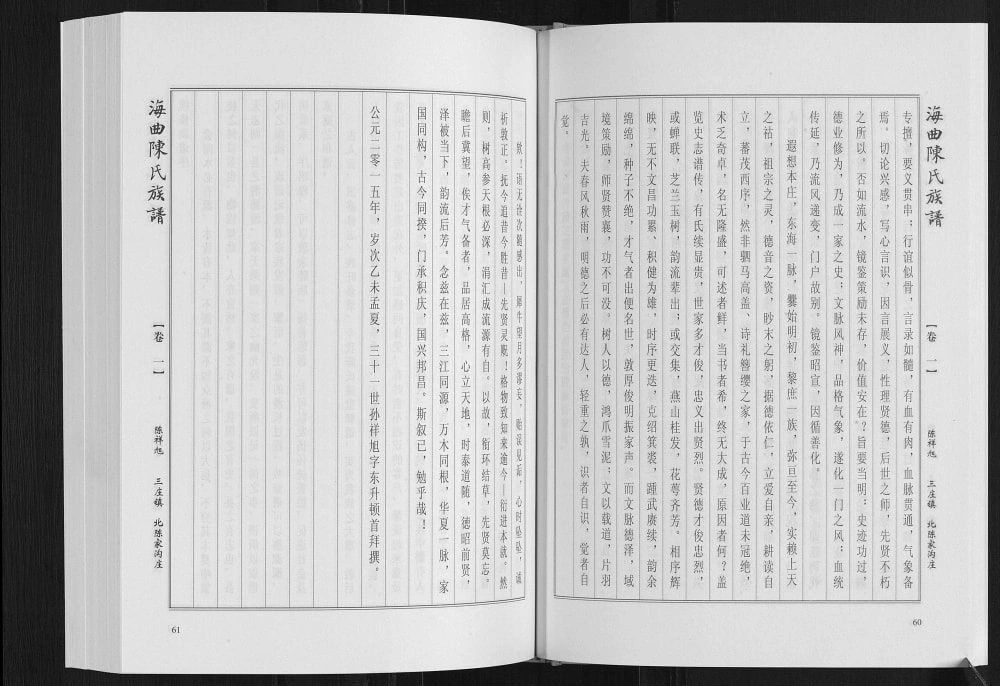 海曲陳氏族譜
【卷一】
陈祥旭 三庄镇 北陈家沟庄
60
专擅，要义贯串；行谊似骨，言录如髓，有血有肉，血脉贯通，气象备
焉。切论兴感，写心言识，因言展义，性理贤德，后世之师，先贤不朽
之所以。否如流水，镜鉴策励未存，价值安在？旨要当明：史迹功过，
德业修为，乃成一家之史；文脉风神，品格气象，遂化一门之风；血统
传延，乃流风递变，门户故别。镜鉴昭宣，因循善化。
遐想本庄，东海一脉，爨始明初，黎庶一族，弥亘至今，实赖上天
之祜，祖宗之灵，德音之资，眇末之躬，据德依仁，立爱自亲，耕读自
立，蕃茂西序，然非驷马高盖、诗礼簪缨之家，于古今百业道未冠绝，
术乏奇卓，名无隆盛，可述者鲜，当书者希，终无大成，原因者何？盖
览史志谱传，有氏续显贵，世家多才俊，忠义出贤烈。贤德才俊忠烈，
或蝉联，芝兰玉树，韵流辈出；或交集，燕山桂发，花萼齐芳。相序辉
映，无不文昌功累、积健为雄，时序更迭，克绍箕裘，踵武赓续，韵余
绵绵，种子不绝，才气者出便名世，敦厚俊明振家声。而文脉德泽，域
境策励，师贤赞襄，功不可没。树人以德，鸿爪雪泥；文以载道，片羽
吉光。夫春风秋雨，明德之后必有达人，轻重之孰，识者自识，觉者自
觉。
欸！语无诠次随感出，犀牛望月多谬妄，贻误见诟，心时坠坠，诚
祈教正。抚今追昔今胜昔—先贤灵顺！格物致知来逾今—衍进本就。然
则，树高参天根必深，涓汇成流源有自。以故，衔环结草，先贤莫忘。
瞻后冀望，俟才气备者，品居高格，心立天地，时泰道随，德昭前贤，
泽被当下，韵流后芳。念兹在兹，三江同源，万木同根，华夏一脉，家
国同构，古今同揆，门承积庆，国兴邦昌。斯叙已，勉乎哉！
公元二零一五年，岁次乙未孟夏，三十一世孙样旭字东升顿首拜撰。
海曲陳氏族譜
【卷一】
陈祥旭 三庄镇 北陈家沟庄
61